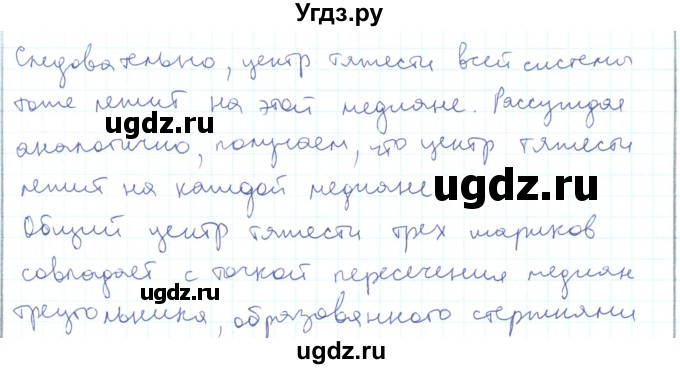 Угдз.ру
Следовательно, центр тяжести всей системы
тоже лежит на этой медиане. Рассуждая
ugdz.ru
аналогично, получаем, что центр тяжести
лежит на каждой медиане
ugdz.ru
Общий центр тяжести трех шариков
совпадает с точкой пересечения медиан
ugdz.ru
треугольника, образованного стержнями
ugdz.ru